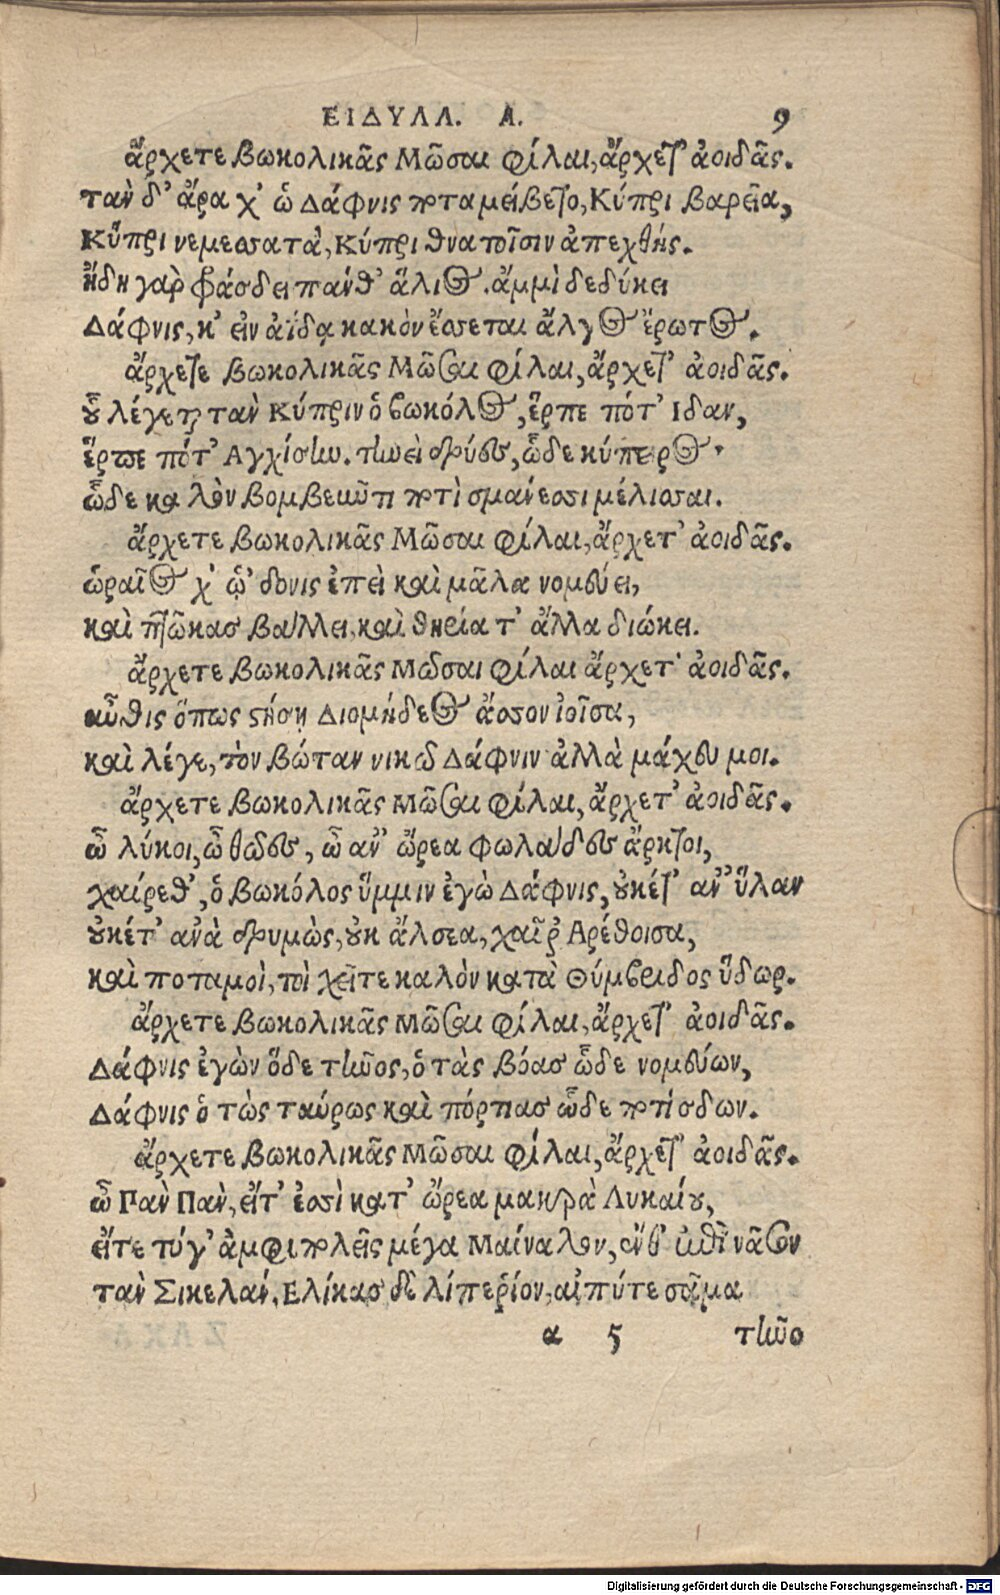 ΕΙΔΥΛΛ. Α. 9
ἄρχετε βωκολικᾶς Μῶσαι φίλαι, ἄρχετ' ἀοιδᾶς.
τὰν δ' ἄρα χ' ὡ Δάφνις ποταμείβετο, Κύπρι βαρεῖα,
Κύπρι νεμεσσατὰ, Κύπρι θνατοῖσιν ἀπεχθής.
ἤδη γὰρ φράσδει πάνθ' ἅλιος ἄμμι δεδύκει
Δάφνις, κ' εἰν ἀΐδᾳ κακὸν ἔσσεται ἄλγος ἔρωτος.
ἄρχετε βωκολικᾶς Μῶσαι φίλαι, ἄρχετ' ἀοιδᾶς.
οὗ λέγεται τὰν Κύπριν ὁ βωκόλος, ἕρπε πότ' Ιδαν,
ἕρπε πότ' Αγχίσην. τηνεὶ δρύες, ὧδε κύπειρος.
ὧδε καλὸν βομβεῦντι ποτὶ σμάνεσσι μέλισσαι.
ἄρχετε βωκολικᾶς Μῶσαι φίλαι, ἄρχετ' ἀοιδᾶς.
ὡραῖος χ' ᾥ'δονις ἐπεὶ καὶ μᾶλα νομεύει,
καὶ πτῶκας βάλλει, καὶ θηεία τ' ἄλλα διώκει.
ἄρχετε βωκολικᾶς Μῶσαι φίλαι ἄρχετ' ἀοιδᾶς.
αὖθις ὅπως στήσῃ Διομήδεος ἄσσον ἰοῖσα,
καὶ λέγε, τὸν βώταν νικῶ Δάφνιν ἀλλὰ μάχευ μοι.
ἄρχετε βωκολικᾶς Μῶσαι φίλαι, ἄρχετ' ἀοιδᾶς.
ὦ λύκοι, ὦ θῶες, ὦ ἀν' ὤρεα φωλάδες ἄρκτοι,
χαίρεθ', ὁ βωκόλος ὔμμιν ἐγὼ Δάφνις, οὐκέτ' ἀν' ὕλαν
οὐκέτ' ἀνὰ δρυμὼς, οὐκ ἄλσεα, χαῖρ' Αρέθοισα,
καὶ ποταμοὶ, τοὶ χεῖτε καλὸν κατὰ Θύμβριδος ὕδωρ.
ἄρχετε βωκολικᾶς Μῶσαι φίλαι, ἄρχετ' ἀοιδᾶς.
Δάφνις ἐγὼν ὅδε τῆνος, ὁ τὰς βόας ὧδε νομεύων,
Δάφνις ὁ τὼς ταύρως καὶ πόρτιας ὧδε ποτίσδων.
ἄρχετε βωκολικᾶς Μῶσαι φίλαι, ἄρχετ' ἀοιδᾶς.
ὦ Πὰν Πὰν, εἴτ' ἐσσὶ κατ' ὤρεα μακρὰ Λυκαίου,
εἴτε τύγ' ἀμφιπολεῖς μέγα Μαίναλον, ἔνθ' ἐπὶ νᾶσον
τὰν Σικελάν, Ελίκας δὲ λίπε ῥίον, αἰπύ τε σᾶμα
α 5 τῆνο
Digitalisierung gefördert durch die Deutsche Forschungsgemeinschaft - DFG